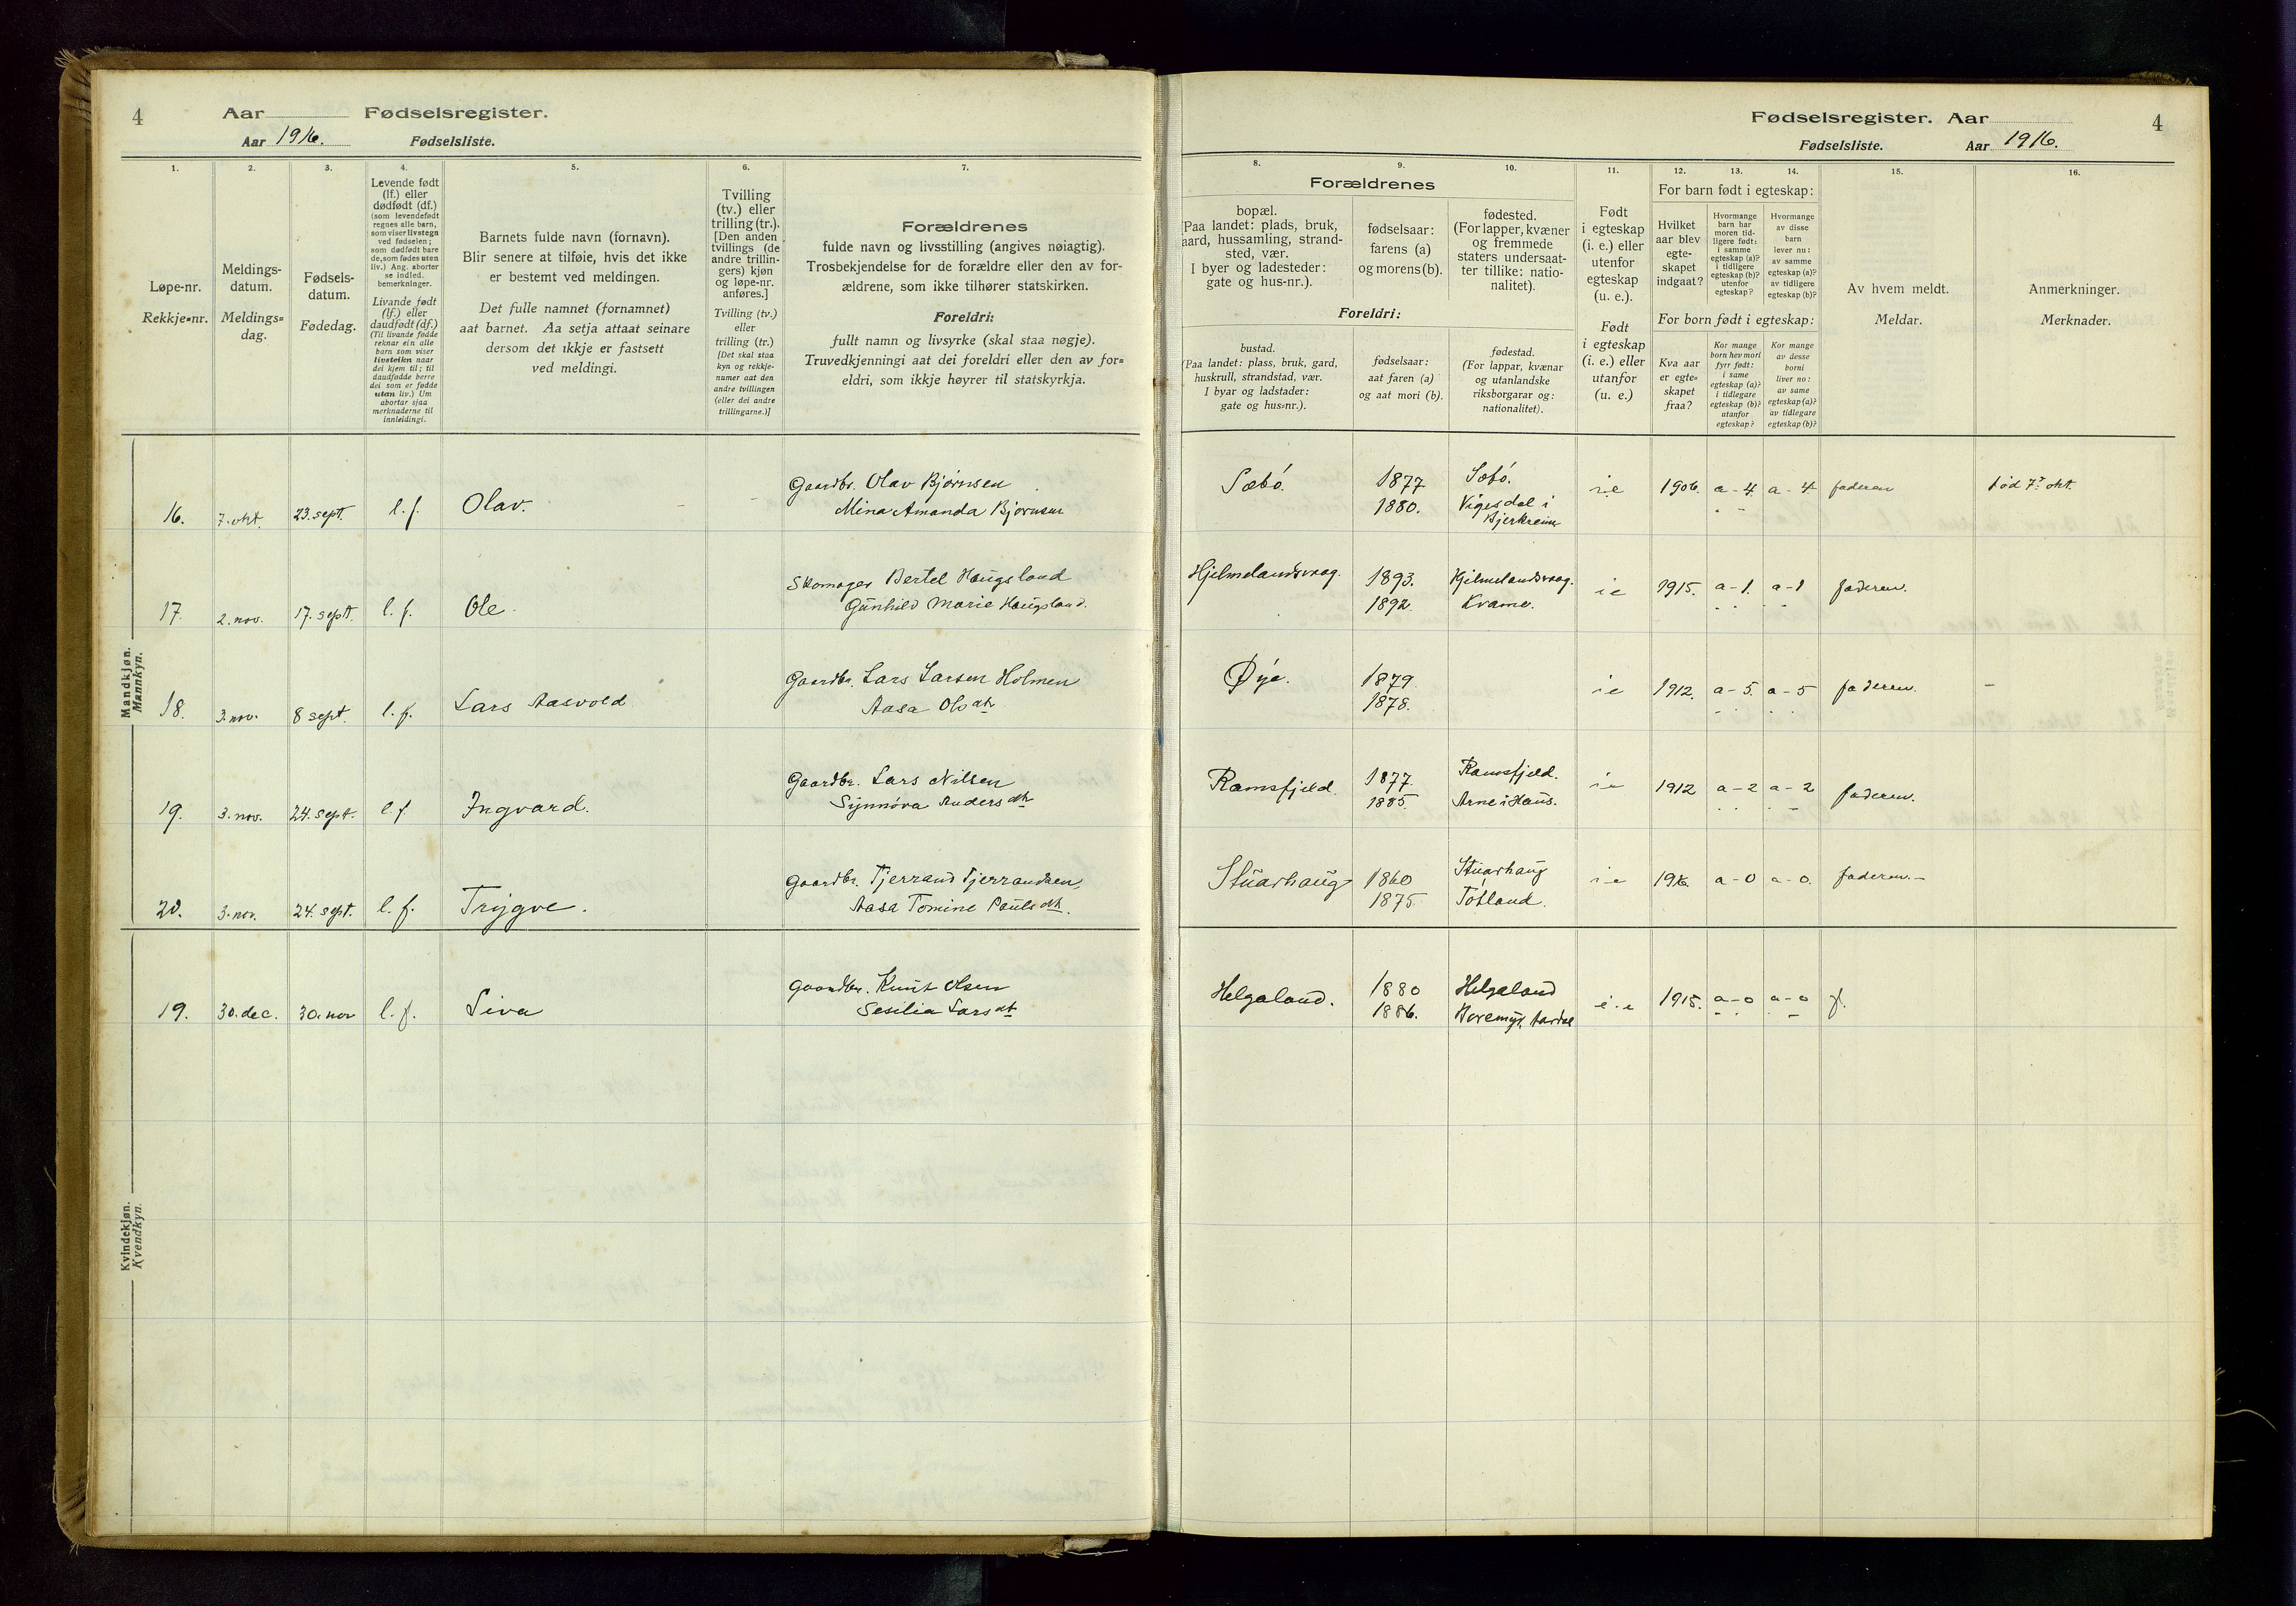 4 Aar Fødselsregister.
Aar 1916. Fødselsliste.
1. 2. 3. 4. 5. 6. 7.
Løpe-nr.
Rekkje-nr.
Meldings-
datum.
Meldings-
dag.
Fødsels-
datum.
Fødedag.
Levende født
(lf.) eller
dødfødt (df.)
(som levendefødt
regnes alle barn,
som viser livstegn
ved fødselen;
som dødfødt bare
de, som fødes uten
liv.) Ang. aborter
se indled.
bemerkninger.
Livande født
(lf.) eller
daudfødt (df.)
(Til livande fødde
reknar ein alle
barn som viser
livsteikn naar
dei kjem til; til
daudfødde berre
dei som er fødde
utan liv.) Um
abortar sjaa
merknaderne til
innleidingi.
Barnets fulde navn (fornavn).
Blir senere at tilføie, hvis det ikke
er bestemt ved meldingen.
Det fulle namnet (fornamnet)
aat barnet. Aa setja attaat seinare
dersom det ikkje er fastsett
ved meldingi.
Tvilling
(tv.) eller
trilling (tr.).
[Den anden
tvillings (de
andre trillin-
gers) kjøn
og løpe-nr.
anføres.]
Tvilling (tv.)
eller
trilling (tr.)
[Det skal staa
kyn og rekkje-
numer aat den
andre tvillingen
(eller dei andre
trillingarne.)]
Forældrenes
fulde navn og livsstilling (angives nøiagtig).
Trosbekjendelse for de forældre eller den av for-
ældrene, som ikke tilhører statskirken.
Foreldri:
fullt namn og livsyrke (skal staa nøgje).
Truvedkjenningi aat dei foreldri eller den av for-
eldri, som ikkje høyrer til statskyrkja.
Mandkjøn.
Mannkyn.
16. 7. okt. 23. sept. l. f. Olav. Gaardbr. Olav Bjørnsen
Mina Amanda Bjørnsen
17. 2. nov. 17. sept. l. f. Ole. Skomager Bertel Haugsland
Gunhild Marie Haugsland.
18. 3. nov. 8 sept. l. f. Lars Aasvold Gaardbr. Lars Larsen Holmen
Aasa Olsdtr.
19. 3. nov. 24. sept. l. f. Ingvard. Gaardbr. Lars Nilsen
Synnøva Andersdtr
20. 3. nov. 24. sept. l. f. Trygve. Gaardbr. Tjerrand Tjerrandsen,
Aasa Tomine Paulsdtr.
Kvindekjøn.
Kvendkyn.
19. 30. dec. 30. nov l. f. Siva Gaardbr. Knut Olsen
Sesilia Larsdt
Fødselsregister. Aar 4
Fødselsliste. Aar 1916.
8. 9. 10. 11. 12. 13. 14. 15. 16.
Forældrenes
bopæl.
(Paa landet: plads, bruk,
gaard, hussamling, strand-
sted, vær.
I byer og ladesteder:
gate og hus-nr.).
fødselsaar:
farens (a)
og morens (b).
fødested.
(For lapper, kvæner
og fremmede
staters undersaat-
ter tillike: natio-
nalitet).
Foreldri:
bustad.
(Paa landet: plass, bruk, gard,
huskrull, strandstad, vær.
I byar og ladstader:
gate og hus-nr.).
fødselsaar:
aat faren (a)
og aat mori (b).
fødestad.
(For lappar, kvænar
og utanlandske
riksborgarar og:
nationalitet).
Født
i egteskap
(i. e.) eller
utenfor
egteskap
(u. e.).
Født
i egteskap
(i. e.) eller
utanfor
(u. e.)
For barn født i egteskap:
Hvilket
aar blev
egte-
skapet
indgaat?
Hvormange
barn har
moren tid-
ligere født:
i samme
egteskap (a)?
i tidligere
egteskap (b)?
utenfor
egteskap?
Hvormange
av disse
barn
lever nu:
av samme
egteskap (a)?
av tidligere
egteskap (b)?
For born født i egteskap:
Kva aar
er egte-
skapet
fraa?
Kor mange
born hev mori
fyrr født:
i same
egteskap (a)?
i tidlegare
egteskap (b)?
utanfor
egteskap?
Kor mange
av desse
borni
liver no:
av same
egteskap (a)?
av tidlegare
egteskap (b)?
Av hvem meldt.
Meldar.
Anmerkninger.
Merknader.
Sæbø. 1877 Sæbø. i.e 1906. a - 4 a - 4 faderen død 7. okt.
1880. Vigesdal i
Bjerkreim
Hjelmelandsvaag. 1893. Hjelmelandsvaag. i e 1915. a - 1. a - 1 faderen.
1892. Kvame.
Øye. 1879. i e 1912. a - 5. a - 5 faderen. -
1878.
Ramsfjeld. 1877. Ramsfjeld. i e 1912 a - 2 a - 2 faderen.
1885. Arne i Haus.
Stuarhaug 1860 Stuarhaug i - e 1916. a - 0 a - 0. faderen. -
1875. Tøtland.
Helgaland. 1880 Helgaland i. e 1915. a - 0 a - 0 f.
1886. Aardal